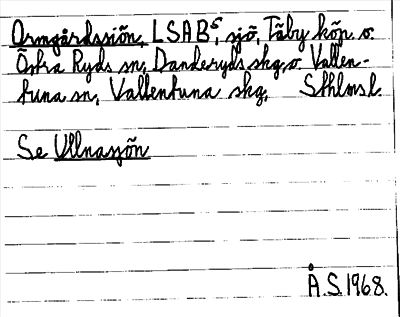 Ormgårdssiön, LSABs, sjö, Täby köp. o.
Östra Ryds sn, Danderyds skg, o. Vallen-
tuna sn, Vallentuna skg, Sthlms l.
Se Ullnasjön
Å.S.1968.